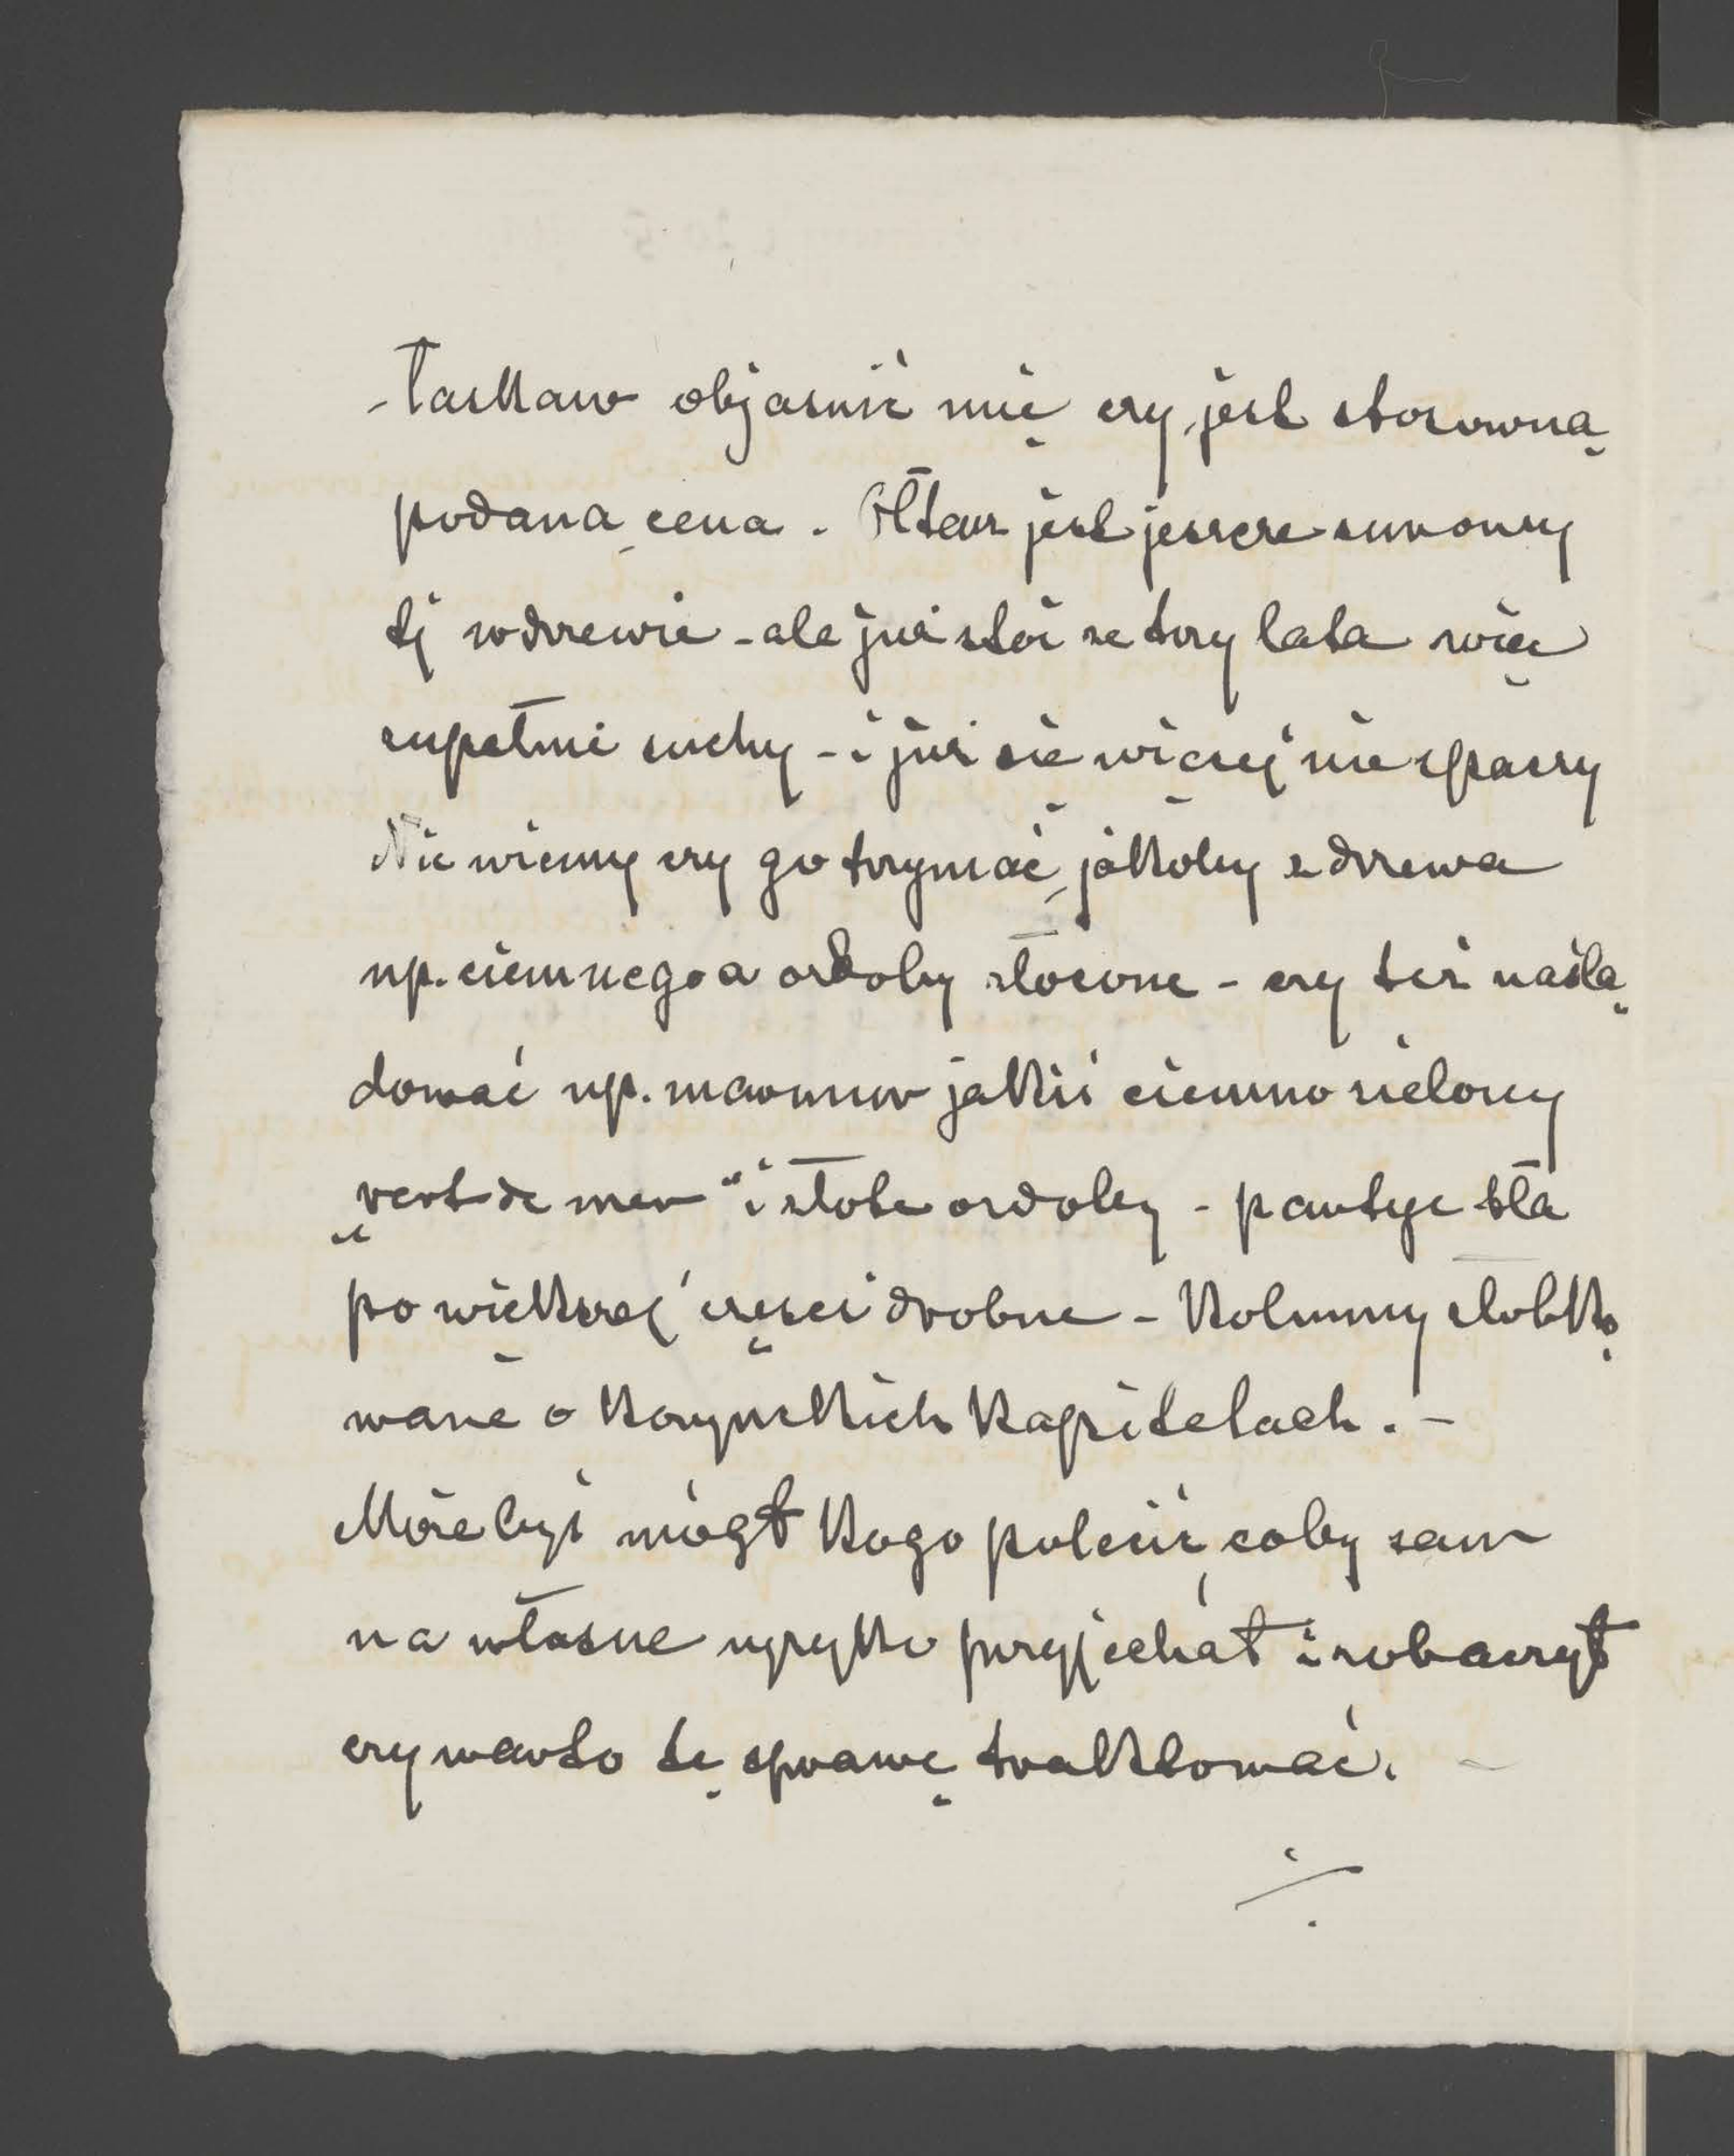 łaskaw objaśnić mię czy jest stosowną
podana cena. Ołtarz jest jeszcze surowy
tj w drzewie - ale już stoi ze trzy lata więc
zupełnie suchy - i już się więcej nie spaczy
Nie wiemy czy go trzymać jakoby z drzewa
np. ciemnego a ozdoby złocone - czy też naśla
dować np. marmur jakiś ciemno zielony
„vert de mer" i złote ozdoby - partye tła
po większej części drobne - Kolumny żłobko
wane o korynckich kapitelach. -
Możebyś mógł kogo polecić, coby sam
na własne ryzyko przyjechał i zobaczył
czy warto tę sprawę traktować. -
./.